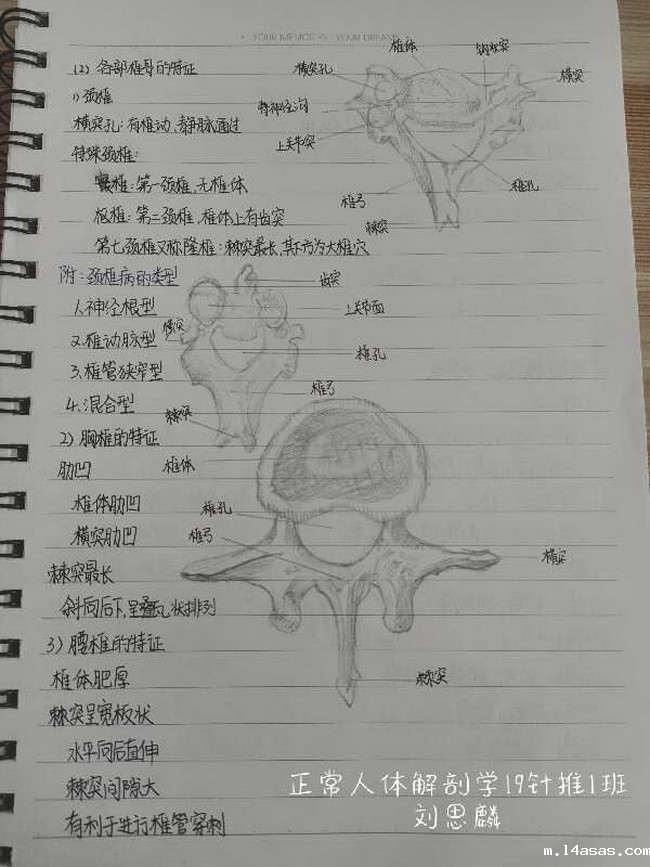 YOUR MEMORIES YOUR DREAM
(2) 各部椎骨的特征
1) 颈椎
横突孔:有椎动、静脉通过
特殊颈椎:
寰椎:第一颈椎,无椎体
枢椎:第二颈椎,椎体上有齿突
第七颈椎又称隆椎:棘突最长,其下方为大椎穴
椎体
钩状突
横突孔
横突
脊神经沟
上关节突
椎弓
椎孔
棘突
附:颈椎病的类型
1.神经根型
2.椎动脉型
3.椎管狭窄型
4.混合型
齿突
上关节面
横突
椎孔
椎弓
棘突
2) 胸椎的特征
肋凹
椎体肋凹
横突肋凹
棘突最长
斜向后下,呈叠瓦状排列
椎体
椎孔
椎弓
横突
棘突
3) 腰椎的特征
椎体肥厚
棘突呈宽板状
水平向后直伸
棘突间隙大
有利于进行椎管穿刺
正常人体解剖学19针推1班
刘思麟
m.14asas.com